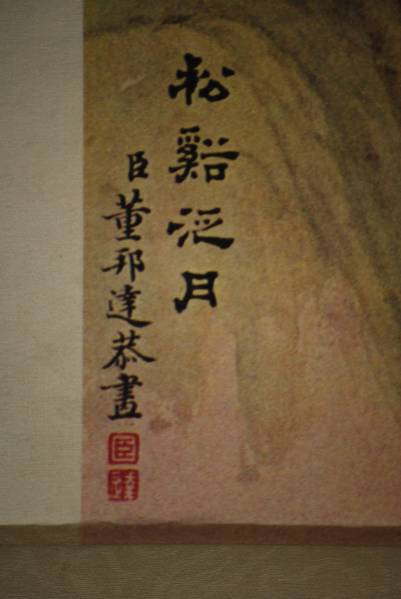 松谿泛月
臣董邦達恭畫
臣
達